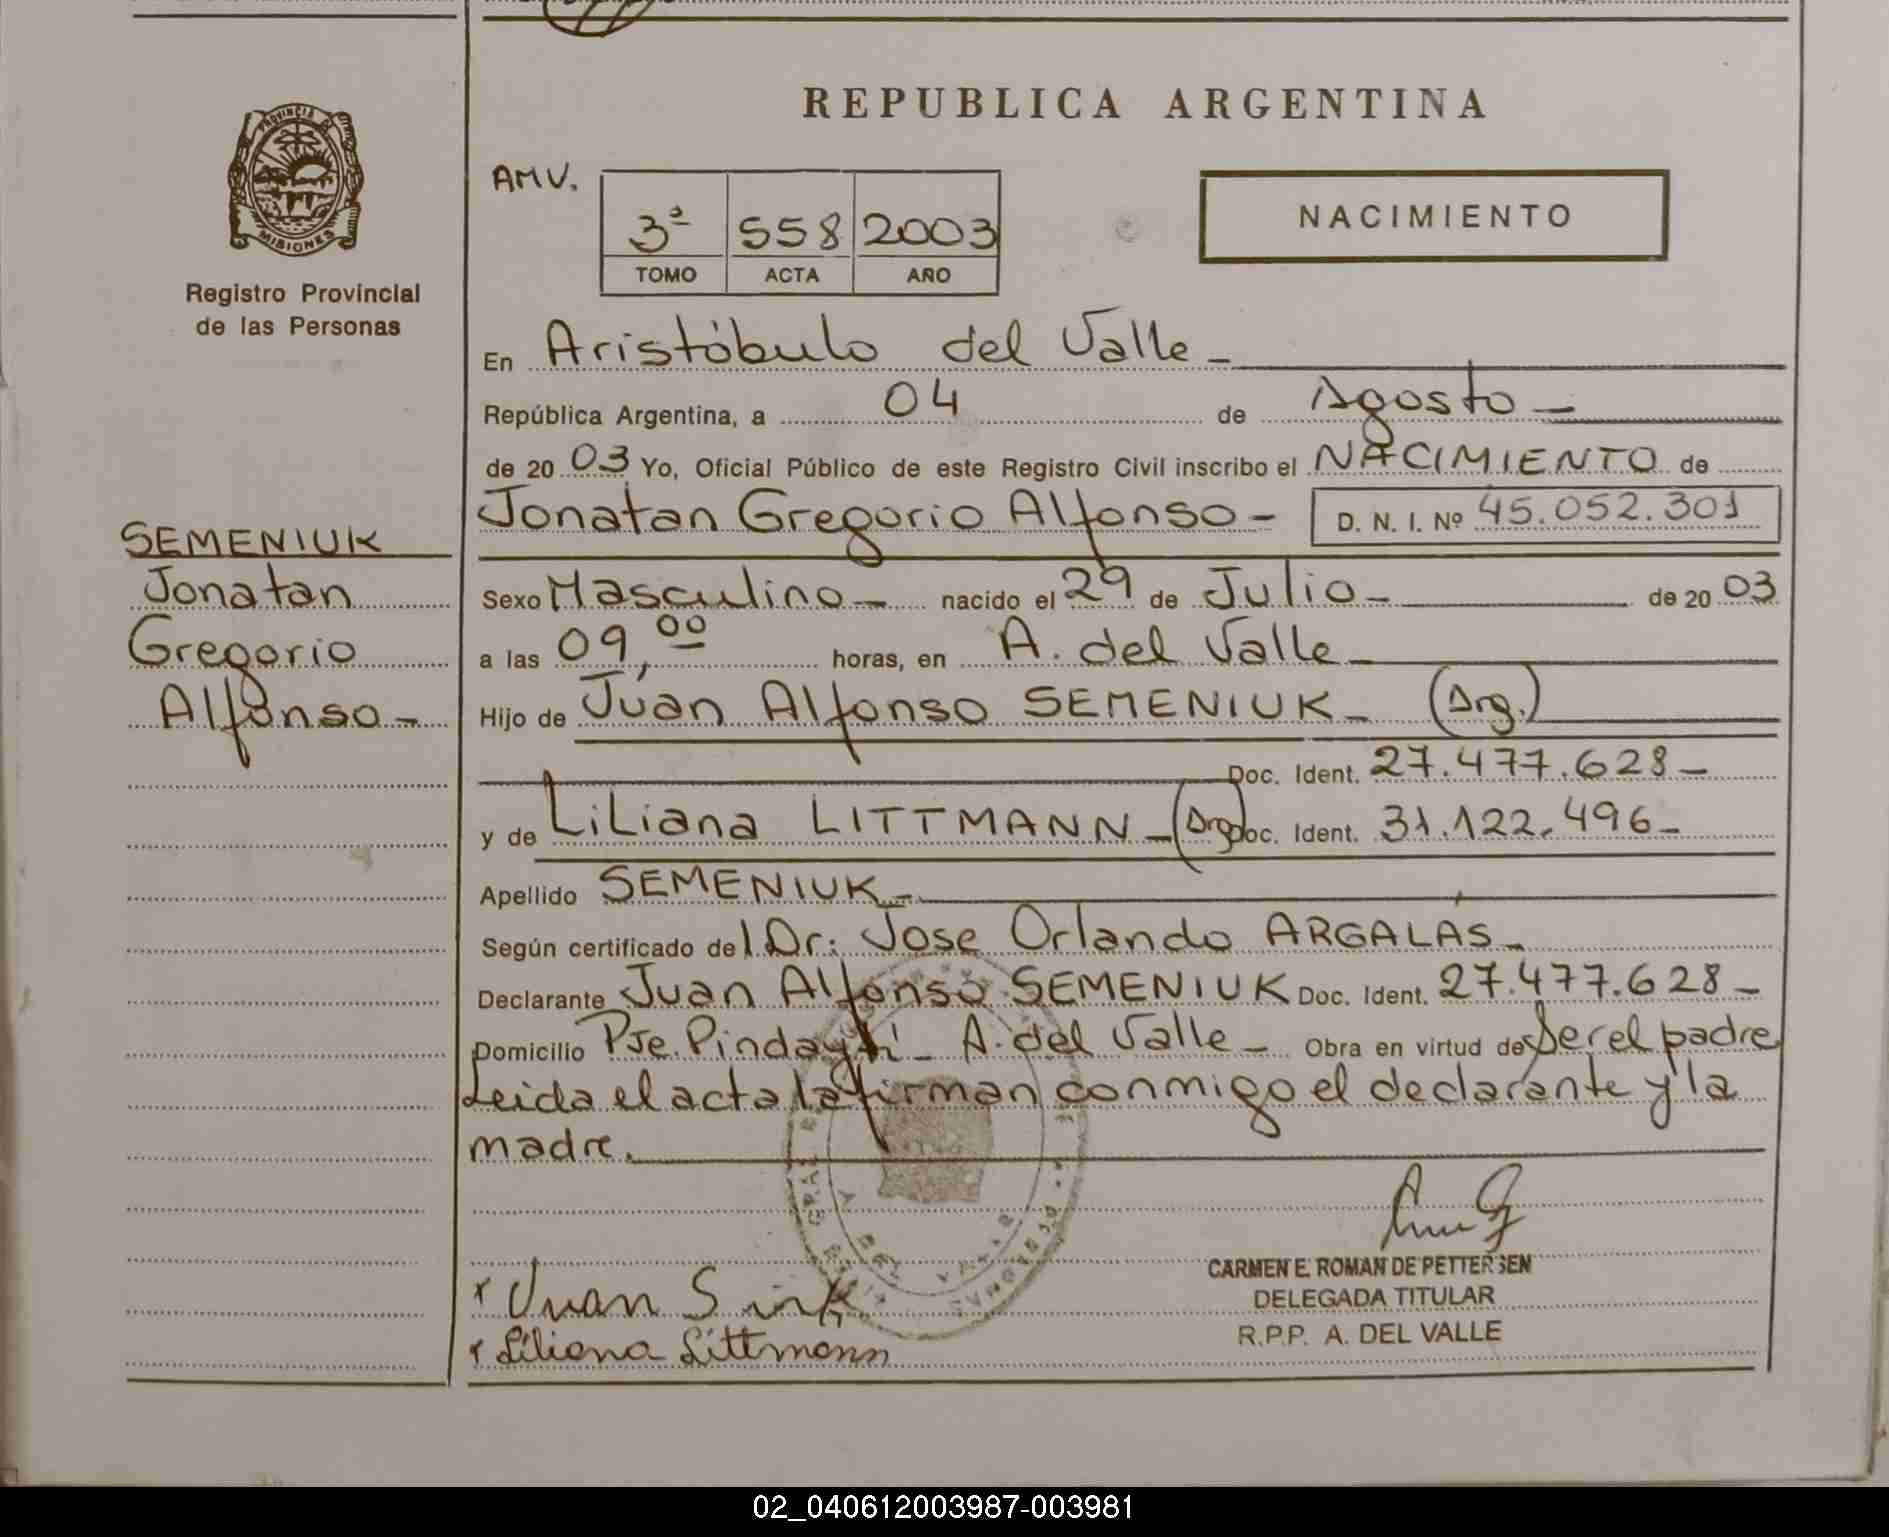 PROVINCIA DE
MISIONES
Registro Provincial
de las Personas
SEMENIUK
Jonatan
Gregorio
Alfonso -
REPUBLICA ARGENTINA
AMV.
3ª 558 2003
TOMO ACTA AÑO
NACIMIENTO
En Aristóbulo del Valle -
República Argentina, a 04 de Agosto -
de 20 03 Yo, Oficial Público de este Registro Civil inscribo el NACIMIENTO de
Jonatan Gregorio Alfonso - D. N. I. Nº 45.052.301
Sexo Masculino - nacido el 29 de Julio - de 20 03
a las 09,00 horas, en A. del Valle -
Hijo de Juan Alfonso SEMENIUK - (Arg.)
Doc. Ident. 27.477.628 -
y de Liliana LITTMANN - (Arg) Doc. Ident. 31.122.496 -
Apellido SEMENIUK -
Según certificado del Dr: Jose Orlando ARGALAS -
Declarante Juan Alfonso SEMENIUK Doc. Ident. 27.477.628 -
Domicilio Pje. Pindaytí - A. del Valle - Obra en virtud de Ser el padre
Leida el acta la firman conmigo el declarante y la
madre.
CARMEN E. ROMAN DE PETTERSEN
DELEGADA TITULAR
R.P.P. A. DEL VALLE
x Juan
x Liliana Littmann
02_040612003987-003981